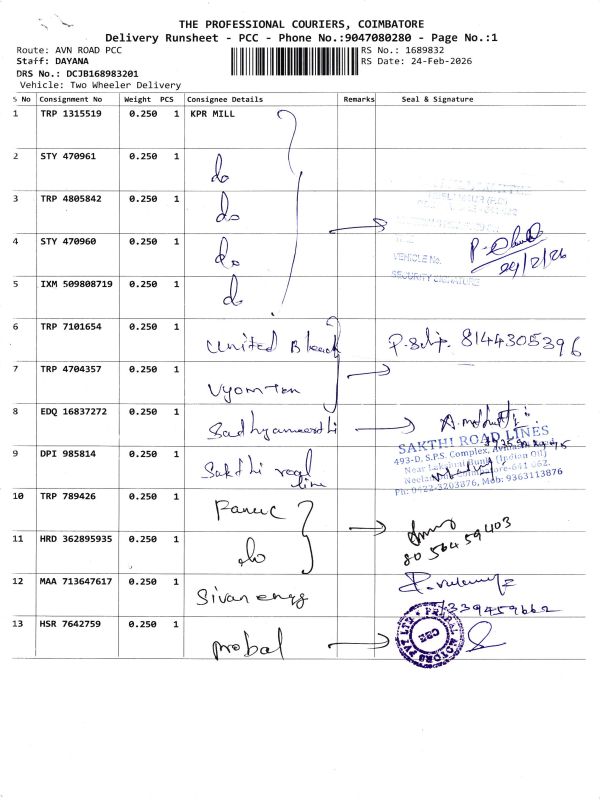 THE PROFESSIONAL COURIERS, COIMBATORE
Delivery Runsheet - PCC - Phone No.:9047080280 - Page No.:1
Route: AVN ROAD PCC
Staff: DAYANA
DRS No.: DCJB168983201
Vehicle: Two Wheeler Delivery
RS No.: 1689832
RS Date: 24-Feb-2026
S No Consignment No Weight PCS Consignee Details Remarks Seal & Signature
1 TRP 1315519 0.250 1 KPR MILL
2 STY 470961 0.250 1 do
3 TRP 4805842 0.250 1 do
4 STY 470960 0.250 1 do
VEHICLE No.
24/2/26
SECURITY SIGNATURE
5 IXM 509808719 0.250 1 do
6 TRP 7101654 0.250 1 United Bleach 8144305396
7 TRP 4704357 0.250 1
8 EDQ 16837272 0.250 1
SAKTHI ROAD LINES
493-D, S.P.S. Complex,
(Indian Oil)
Ph: 0422-3203876, Mob: 9363113876
9 DPI 985814 0.250 1 Sakthi road line
10 TRP 789426 0.250 1 Fanuc
8056459403
11 HRD 362895935 0.250 1 do
12 MAA 713647617 0.250 1 Sivan engg
13 HSR 7642759 0.250 1 probal
PRAPAL MOTORS PVT LTD
CBE